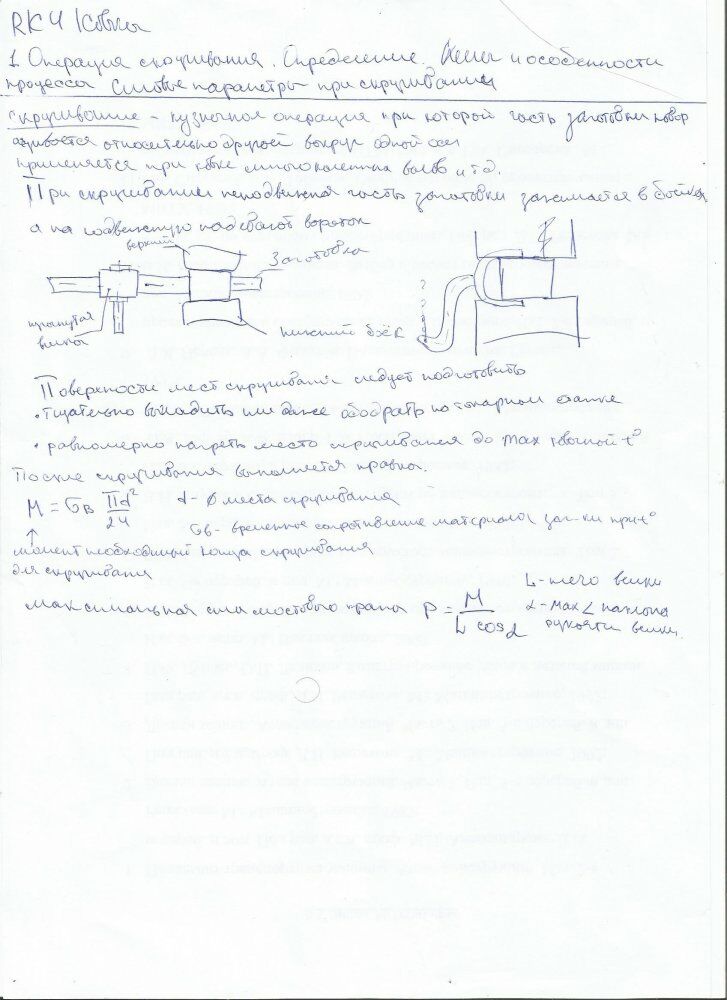 RK4 Ковка
1. Операция скручивания. Определение. Цели и особенности
процесса Силовые параметры при скручивании
Скручивание - кузнечная операция при которой часть заготовки повор
ачивается относительно другой вокруг одной оси
применяется при ковке многоколенных валов и т.д.
При скручивании неподвижная часть заготовки зажимается в бойках
а на подвижную надевают вороток
верхний
Заготовка
вилка
нижний боёк
Поверхности мест скручивания следует подготовить
• тщательно выгладить или даже ободрать на токарном станке
• равномерно нагреть место скручивания до max ковочной t°
После скручивания выполняется правка.
M = σв πd²/24 d - ⌀ места скручивания
σв - временное сопротивление материала заг-ки при t°
момент необходимый конца скручивания
для скручивания
максимальная сила мостового крана P = M / L cos α
L - плечо вилки
α - мак ∠ наклона
рукояти вилки.